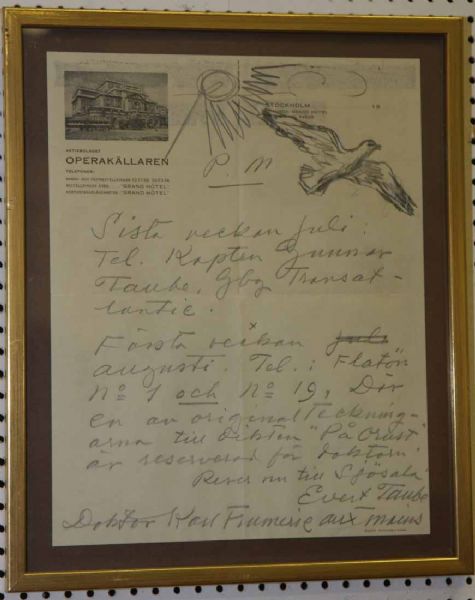 AKTIEBOLAGET
OPERAKÄLLAREN
TELEFONER:
"GRAND HÔTEL"
"GRAND HÔTEL"
STOCKHOLM
19
P. M
Sista veckan juli:
Tel. Kapten Gunnar
Taube, Gbg Transat-
lantic.
Första veckan juli
augusti. Tel.: Flatön
No 1 och No 19, Där
en av originalteckning-
arna till dikten "På Crust"
är reserverad för doktorn!
Reser nu till Sjösala
Evert Taube
Doktor Karl Fiumerie aux mains